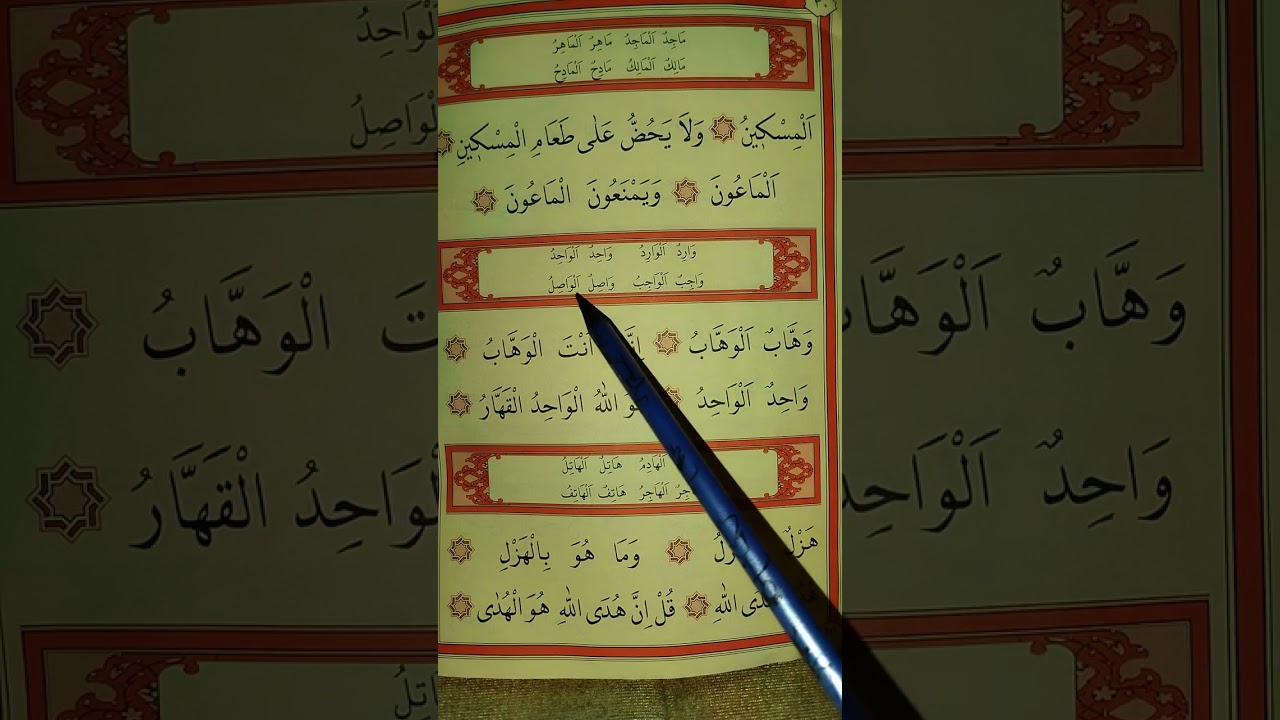 ٣٠
مَاجِدٌ اَلْمَاجِدُ مَاهِرٌ اَلْمَاهِرُ
مَالِكٌ اَلْمَالِكُ مَادِحٌ اَلْمَادِحُ
اَلْمِسْكٖينُ ۞ وَلَا يَحُضُّ عَلٰى طَعَامِ الْمِسْكٖينِ ۞
اَلْمَاعُونَ ۞ وَيَمْنَعُونَ الْمَاعُونَ ۞
وَارِدٌ اَلْوَارِدُ وَاحِدٌ اَلْوَاحِدُ
وَاجِبٌ اَلْوَاجِبُ وَاصِلٌ اَلْوَاصِلُ
وَهَّابٌ اَلْوَهَّابُ ۞ اَنْتَ الْوَهَّابُ ۞
وَاحِدٌ اَلْوَاحِدُ ۞ اللّٰهُ الْوَاحِدُ الْقَهَّارُ ۞
اَلْهَادِمُ هَاتِلٌ اَلْهَاتِلُ
اَلْهَاجِرُ هَاتِفٌ اَلْهَاتِفُ
هَزْلٌ ۞ وَمَا هُوَ بِالْهَزْلِ ۞
اللّٰهِ ۞ قُلْ اِنَّ هُدَى اللّٰهِ هُوَ الْهُدٰى ۞